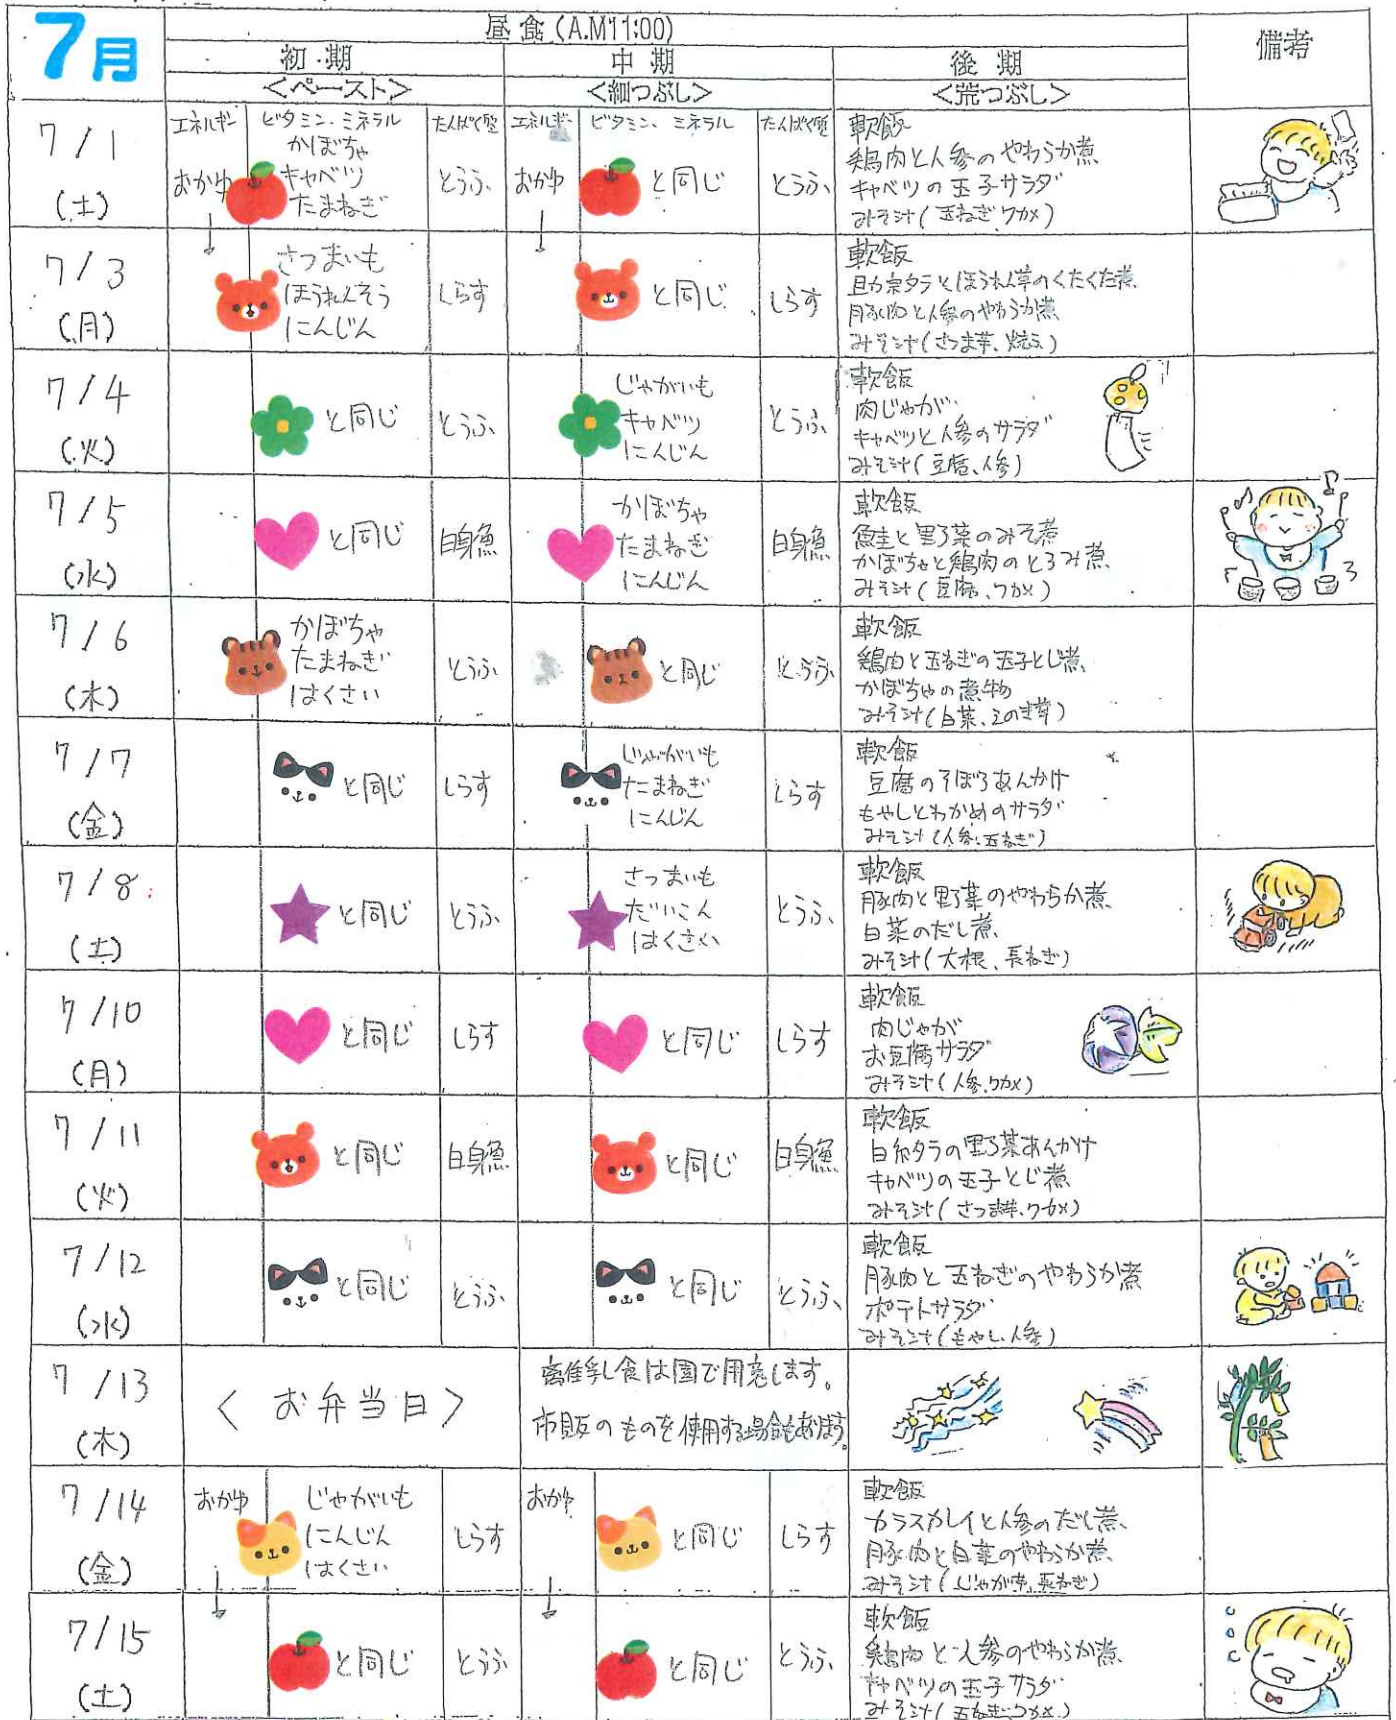 7月
昼食(A.M11:00)
備考
初期
中期
後期
<ペースト>
<細つぶし>
<荒つぶし>
7/1
(土)
エネルギー
ビタミン・ミネラル
たんぱく質
エネルギー
ビタミン、ミネラル
たんぱく質
おかゆ
かぼちゃ
キャベツ
たまねぎ
とうふ
おかゆ
と同じ
とうふ
軟飯
鶏肉と人参のやわらか煮
キャベツの玉子サラダ
みそ汁(玉ねぎ、ワカメ)
7/3
(月)
さつまいも
ほうれんそう
にんじん
しらす
と同じ
しらす
軟飯
タラとほうれん草のくたくた煮
豚肉と人参のやわらか煮
みそ汁(さつま芋、焼ふ)
7/4
(火)
と同じ
とうふ
じゃがいも
キャベツ
にんじん
とうふ
軟飯
肉じゃが
キャベツと人参のサラダ
みそ汁(豆腐、人参)
7/5
(水)
と同じ
白身魚
かぼちゃ
たまねぎ
にんじん
白身魚
軟飯
鮭と野菜のみそ煮
かぼちゃと鶏肉のとろみ煮
みそ汁(豆腐、ワカメ)
7/6
(木)
かぼちゃ
たまねぎ
はくさい
とうふ
と同じ
とうふ
軟飯
鶏肉と玉ねぎの玉子とじ煮
かぼちゃの煮物
みそ汁(白菜、えのき茸)
7/7
(金)
と同じ
しらす
じゃがいも
たまねぎ
にんじん
しらす
軟飯
豆腐のそぼろあんかけ
もやしとわかめのサラダ
みそ汁(人参、玉ねぎ)
7/8
(土)
と同じ
とうふ
さつまいも
だいこん
はくさい
とうふ
軟飯
豚肉と野菜のやわらか煮
白菜のだし煮
みそ汁(大根、長ねぎ)
7/10
(月)
と同じ
しらす
と同じ
しらす
軟飯
肉じゃが
お豆腐サラダ
みそ汁(人参、ワカメ)
7/11
(火)
と同じ
白身魚
と同じ
白身魚
軟飯
白糸タラの野菜あんかけ
キャベツの玉子とじ煮
みそ汁(さつま芋、ワカメ)
7/12
(水)
と同じ
とうふ
と同じ
とうふ
軟飯
豚肉と玉ねぎのやわらか煮
ポテトサラダ
みそ汁(もやし、人参)
7/13
(木)
<お弁当日>
離乳食は園で用意します。
市販のものを使用する場合もあります。
7/14
(金)
おかゆ
じゃがいも
にんじん
はくさい
しらす
おかゆ
と同じ
しらす
軟飯
カラスカレイと人参のだし煮
豚肉と白菜のやわらか煮
みそ汁(じゃが芋、長ねぎ)
7/15
(土)
と同じ
とうふ
と同じ
とうふ
軟飯
鶏肉と人参のやわらか煮
キャベツの玉子サラダ
みそ汁(玉ねぎ、ワカメ)